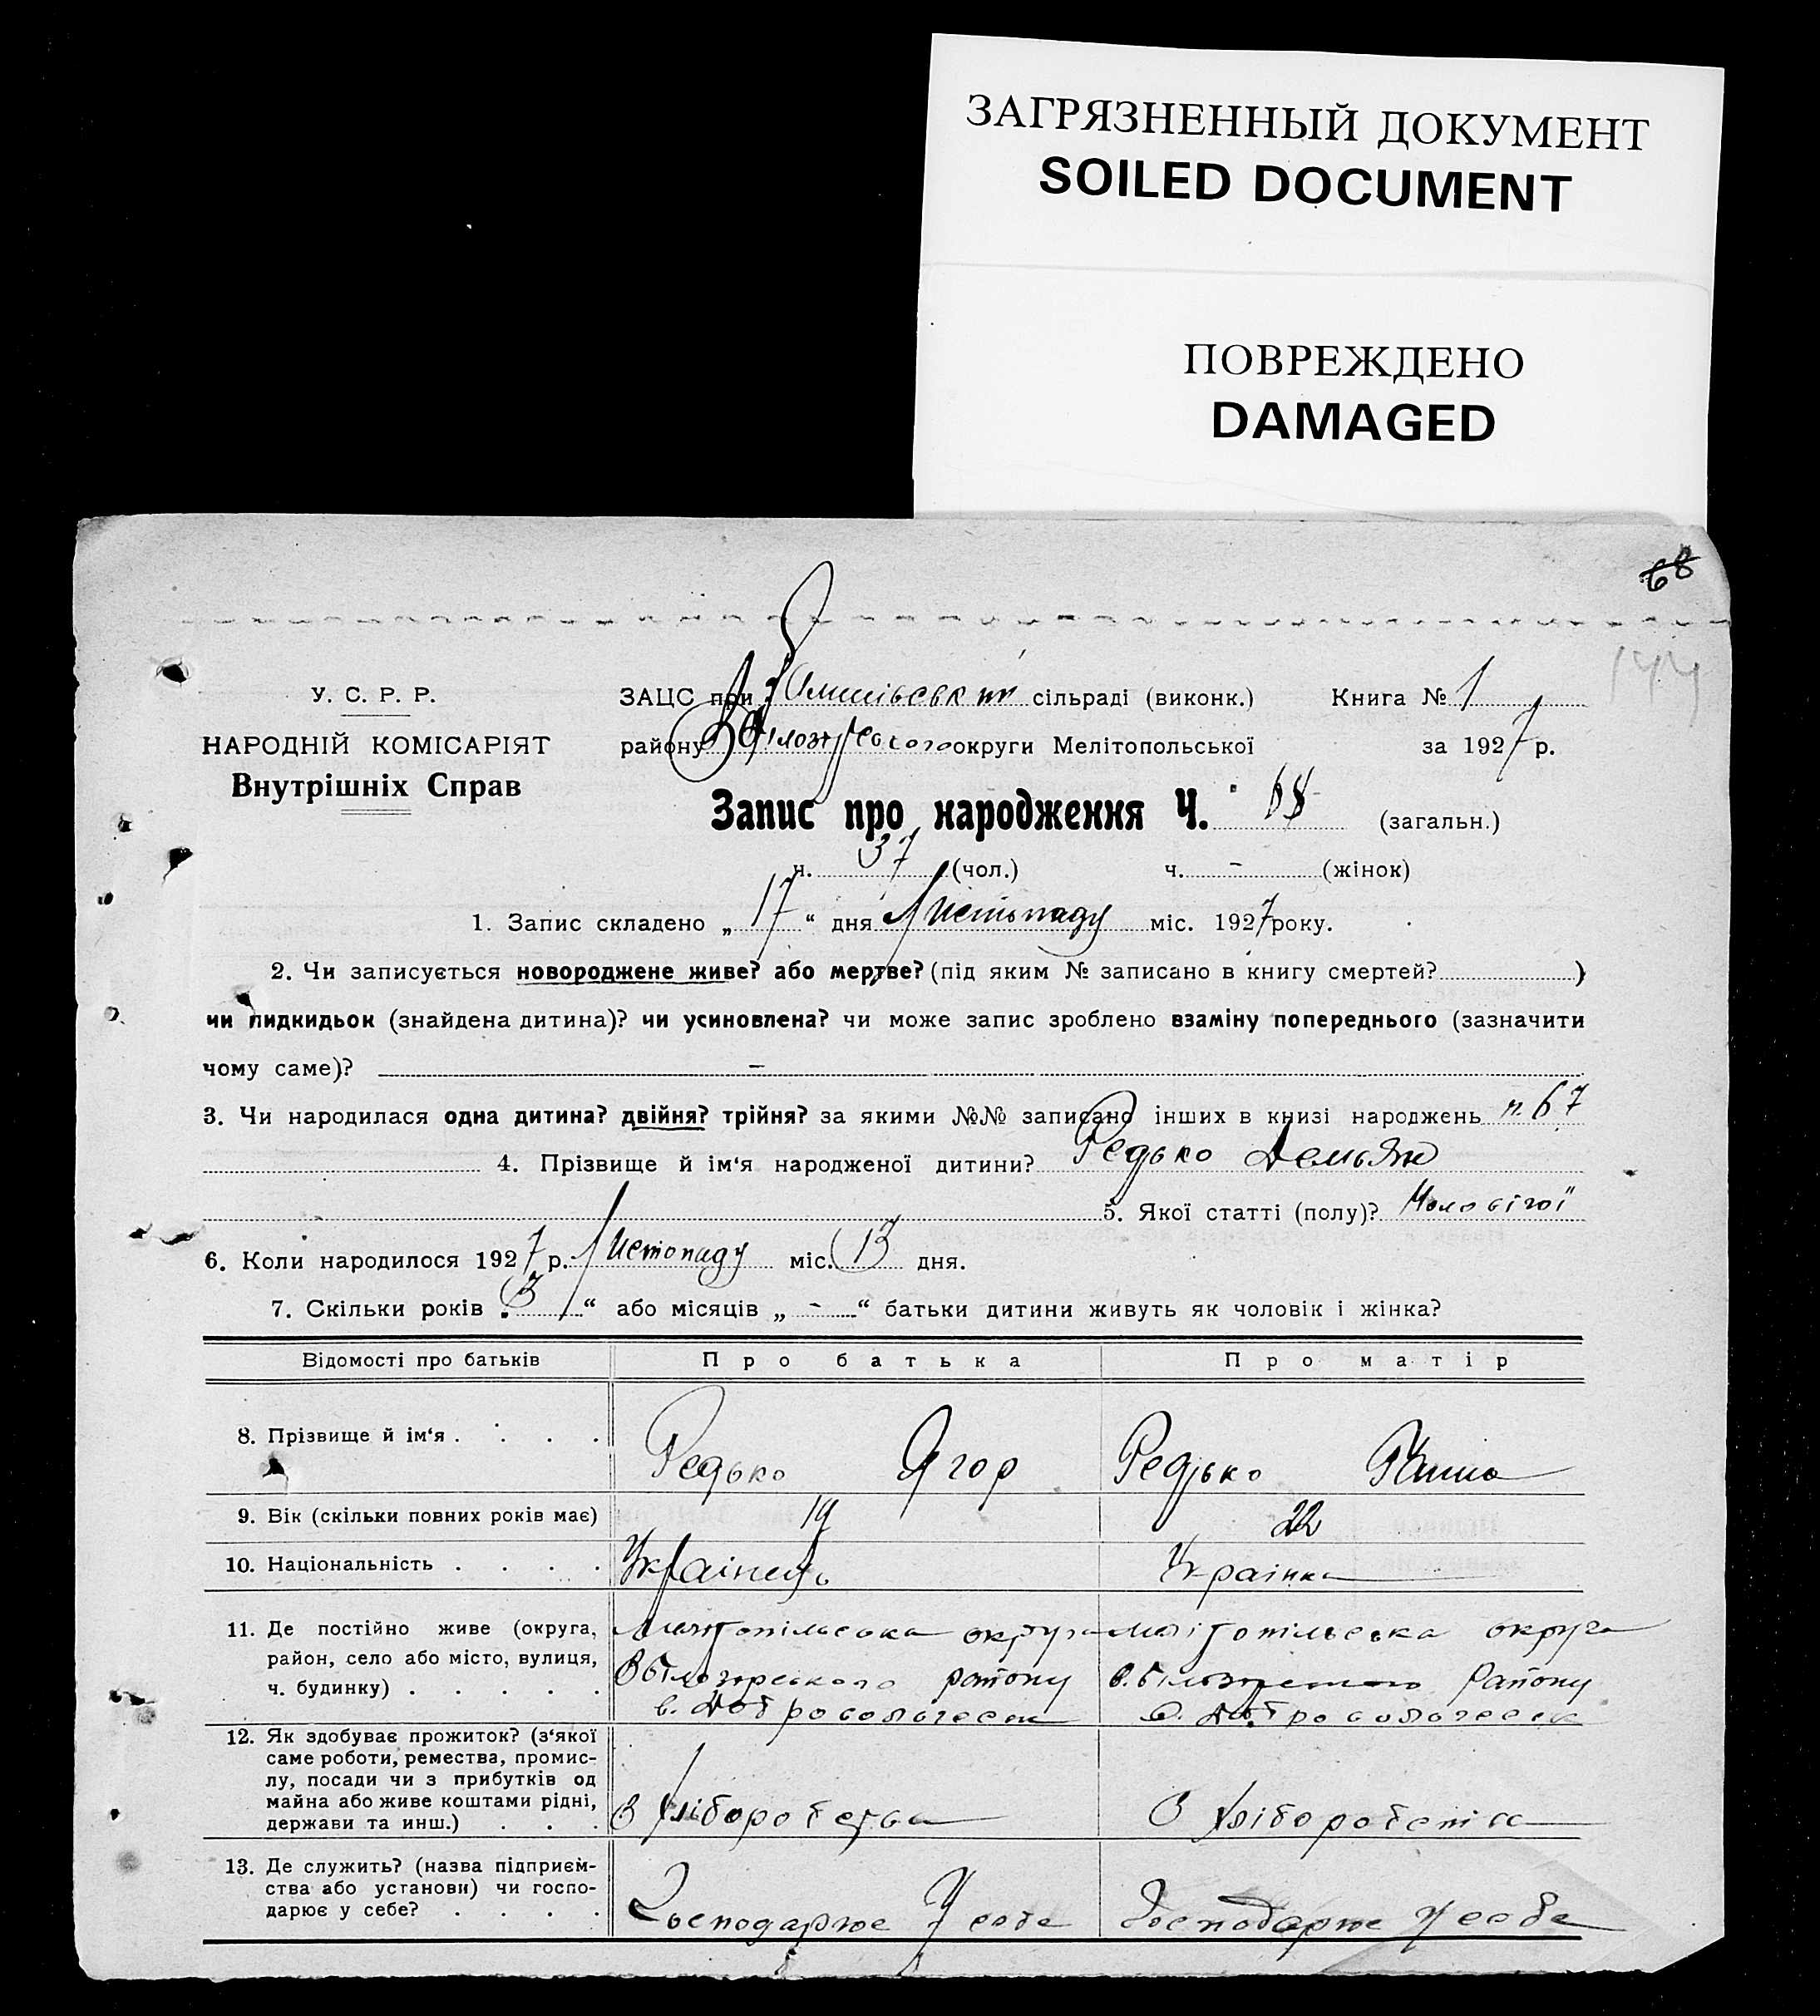 ЗАГРЯЗНЕННЫЙ ДОКУМЕНТ
SOILED DOCUMENT
ПОВРЕЖДЕНО
DAMAGED
68
144
У. С. Р. Р.
НАРОДНІЙ КОМІСАРІЯТ
Внутрішніх Справ
ЗАЦС при сільраді (виконк.) Книга № 1
району округи Мелітопольської за 1927 р.
Запис про народження Ч. 68 (загальн.)
ч. 37 (чол.) ч. - (жінок)
1. Запис складено „17“ дня Листопаду міс. 1927 року.
2. Чи записується новороджене живе? або мертве? (під яким № записано в книгу смертей? )
чи пидкидьок (знайдена дитина)? чи усиновлена? чи може запис зроблено взаміну попереднього (зазначити
чому саме)? –
3. Чи народилася одна дитина? двійня? трійня? за якими №№ записано інших в книзі народжень н. 67
4. Прізвище й ім‘я народженої дитини? Редько Демьян
5. Якої статті (полу)? Чоловічої
6. Коли народилося 1927 р. Листопаду міс. 13 дня.
7. Скільки років „3“ або місяців „ - “ батьки дитини живуть як чоловік і жінка?
Відомості про батьків Про батька Про матір
8. Прізвище й ім‘я . . . . Редько Ягор Редько
9. Вік (скільки повних років має) 19 22
10. Національність . . . . Українець Українка
11. Де постійно живе (округа, Мелітопільська округа Мелітопільська округа
район, село або місто, вулиця, району Району
ч. будинку) . . . . .
12. Як здобуває прожиток? (з‘якої
саме роботи, ремества, промис-
лу, посади чи з прибутків од
майна або живе коштами рідні, З хліборобства З хліборобства
держави та инш.) . . .
13. Де служить? (назва підприєм-
ства або установи) чи госпо-
дарює у себе? . . . . Господарює У собе Господарює У собе